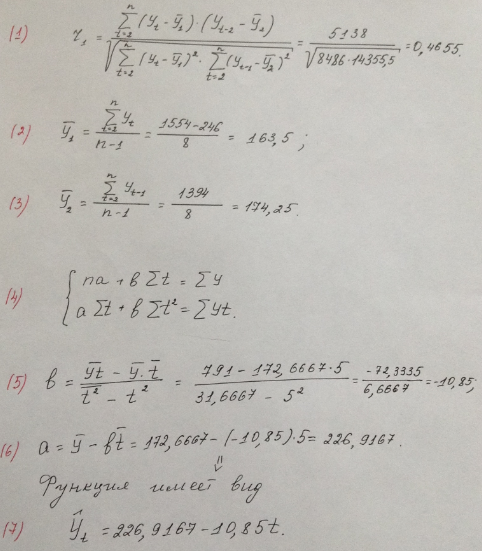 (1) r₁ = ∑ₜ₌₂ⁿ (yₜ - ȳ₁)·(yₜ₋₂ - ȳ₂) / √(∑ₜ₌₂ⁿ (yₜ - ȳ₁)² · ∑ₜ₌₂ⁿ (yₜ₋₁ - ȳ₂)²) = 5138 / √(8486·14355,5) = 0,4655.
(2) ȳ₁ = ∑ₜ₌₂ⁿ yₜ / (n-1) = (1554-246) / 8 = 163,5 ;
(3) ȳ₂ = ∑ₜ₌₂ⁿ yₜ₋₁ / (n-1) = 1394 / 8 = 174,25.
(4) { na + b ∑t = ∑y
a ∑t + b ∑t² = ∑yt.
(5) b = (y̅t̅ - ȳ·t̅) / (t̅² - t²) = (791 - 172,6667·5) / (31,6667 - 5²) = -72,3335 / 6,6667 = -10,85;
(6) a = ȳ - bt̅ = 172,6667 - (-10,85)·5 = 226,9167.
⇓
Функция имеет вид
(7) ŷₜ = 226,9167 - 10,85t.